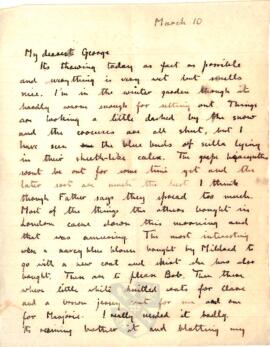 March 10
My dearest George
Its thawing today as fast as possible
and everything is very wet but smells
nice. I'm in the winter garden though it
hardly warm enough for sitting out. Things
are looking a little dashed by the snow
and the crocuses are all shut, but I
have seen the blue buds of scilla lying
in their sheath-like calix. The grape hyacinths
wont be out for some time yet and the
later sort are much the best I think
though Father says they spread too much.
Most of the things the others bought in
London came down this morning and
that was amusing. The most interesting
was a navy blue blouse bought by Mildred to
go with a new coat and skirt she has also
bought. Then are to please Bob. Then there
were little white knitted coats for Clare
and a brown jersey coat for me and one
for Marjorie. I really needed it badly.
Its warming